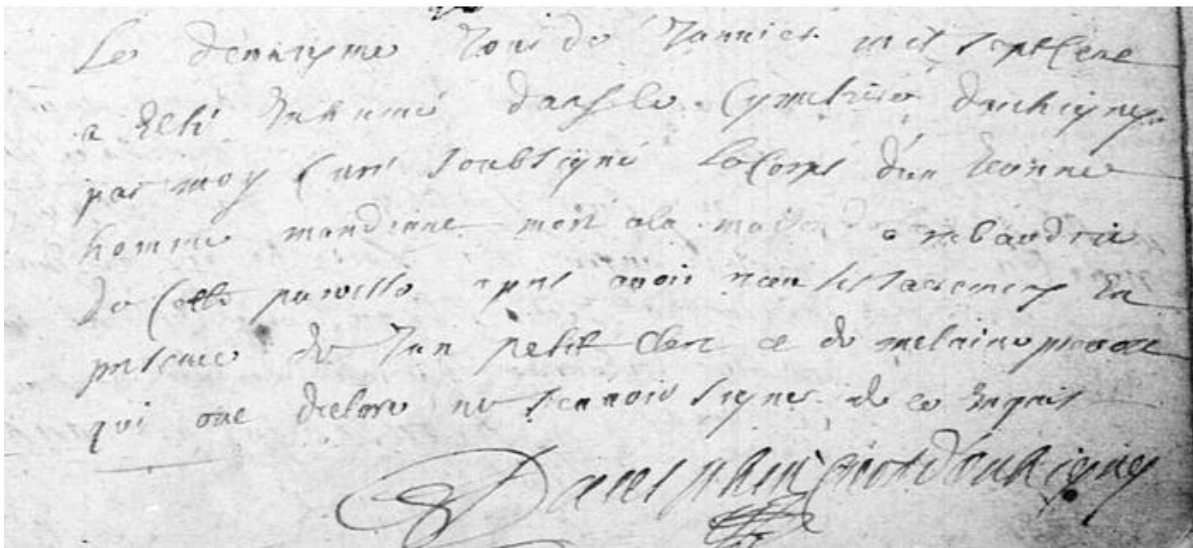 Le deuxiyme Jour de Janvier mil sept cent
a Esté Inhumé dans le Cymetiere daubigney
par moy Curé soubsigné le Corps d'un Jeunne
homme mandiant mort a la
de Cette paroisse apres avoir receu les sacremens En
presence de Jean petit Clerc et de
qui ont declaré ne scavoir signer de ce Enquis